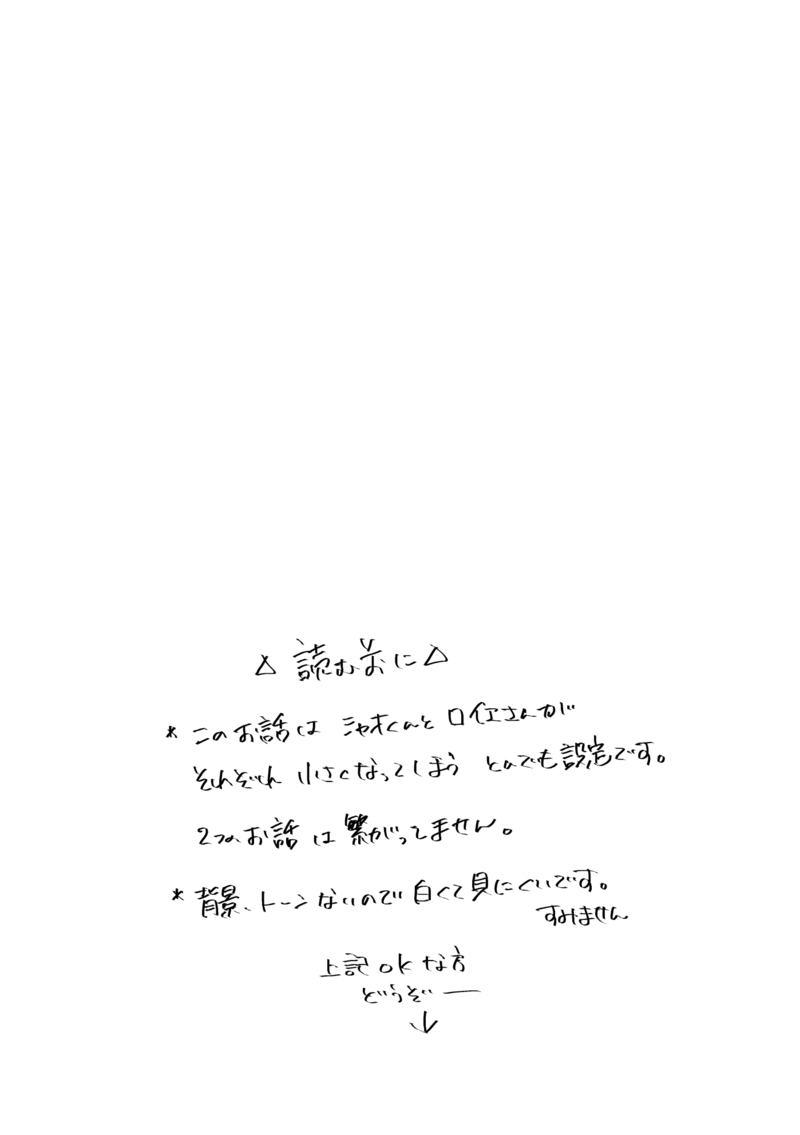 △ 読む前に △
* このお話は シャオくんと ロイエさんが
それぞれ 小さくなってしまう とんでも設定です。
2つのお話は繋がってません。
* 背景、トーンないので白くて見にくいです。
すみません
上記okな方
どうぞー
↓